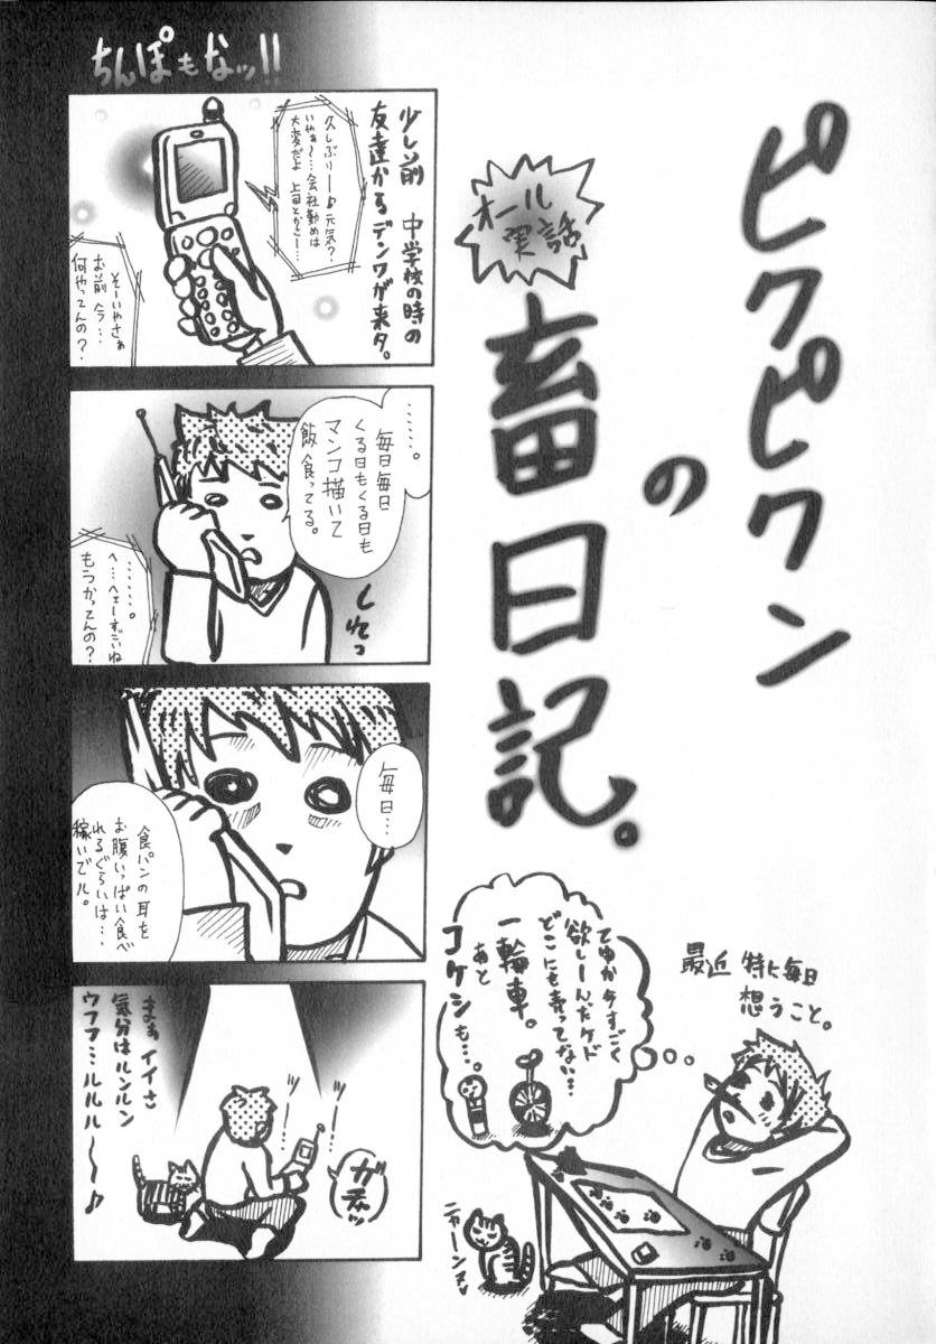 ピクピクン
の
畜日記。
オール
実話
ちんぽもなッ!!
少し前 中学校の時の
友達からデンワが来タ。
久しぶりー♪元気?
いやぁ〜…会社勤めは
大変だよ 上司とかさー…
そーいやさぁ
お前 今…
何やってんの?
……。
毎日毎日
くる日もくる日も
マンコ描いて
飯食ってる。
しれっ
……。
へ…へぇーすごいね
もうかってんの?
毎日…
食パンの耳を
お腹いっぱい食べ
れるぐらいは…
稼いでル。
ガチャッ
まぁイイさ
気分はルンルン
ウフフ…ルルル〜〜♪
最近 特に毎日
想うこと。
てゆか今すごく
欲しーんだケド
どこにも売ってない…
一輪車。
あと
コケシも…。
ニャーンヌ